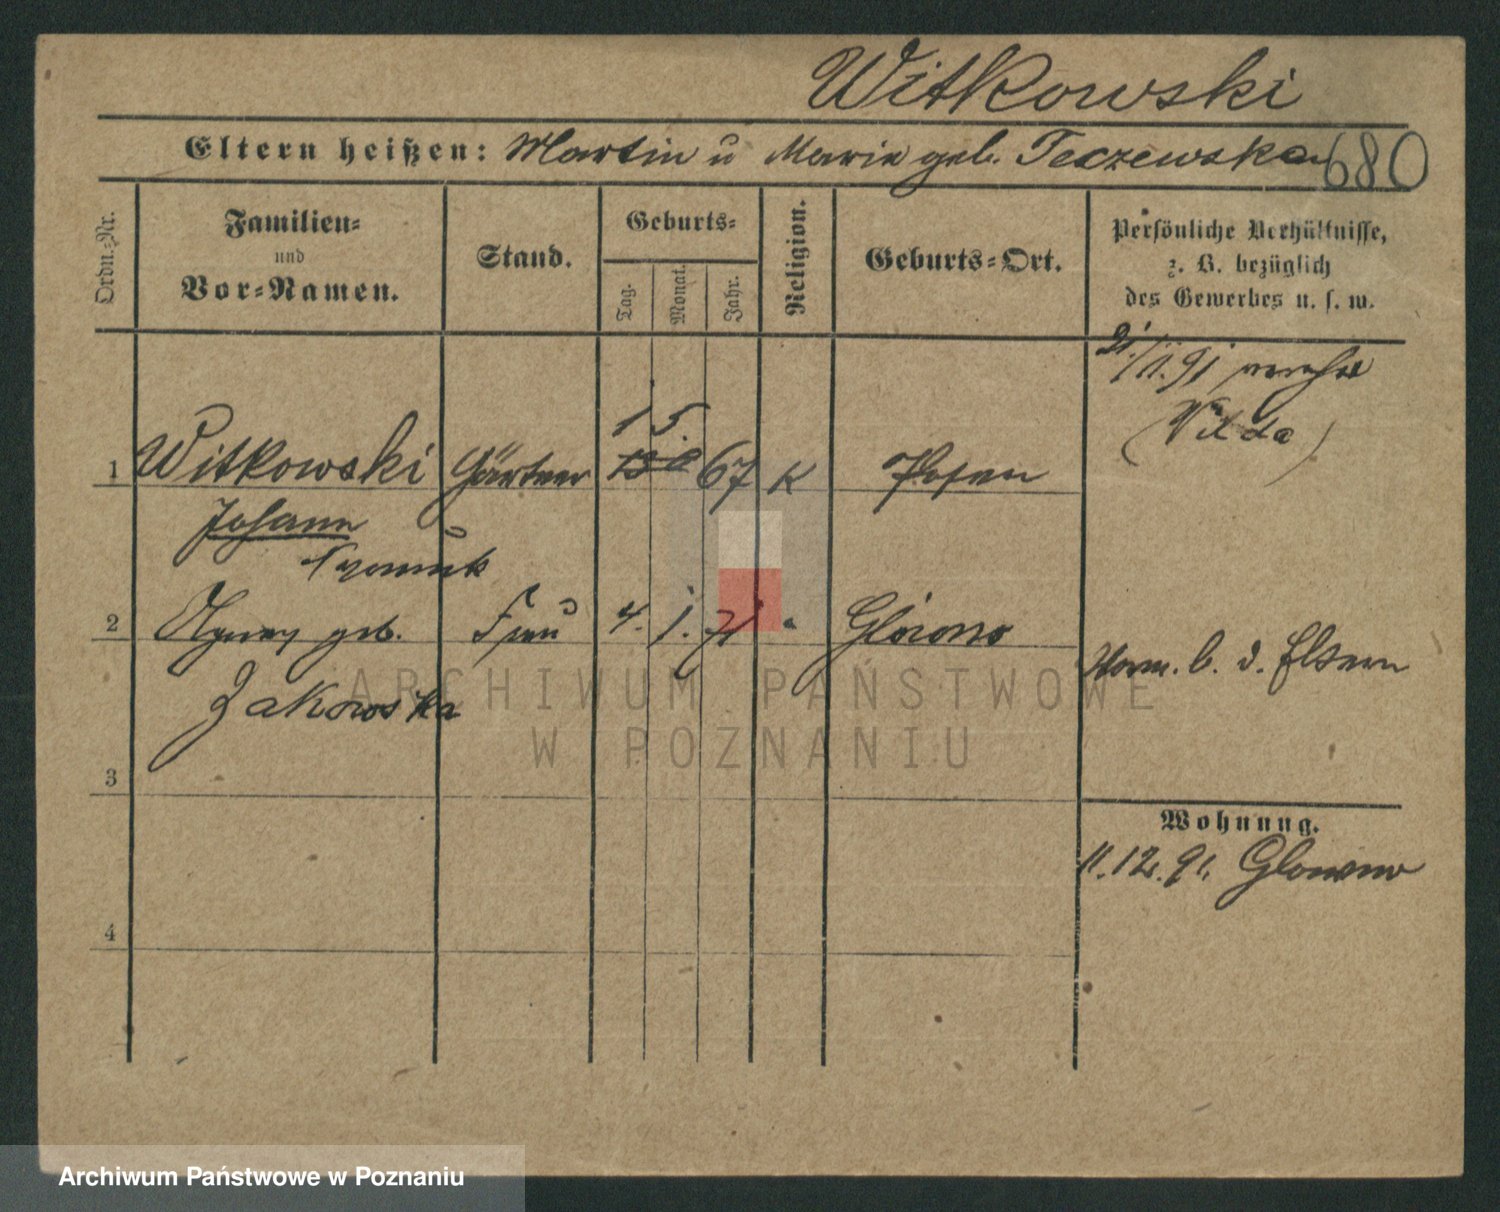 Witkowski
Eltern heißen: Martin u Marie geb. Teczewska 680
Ordn.-Nr.
Familien-
und
Vor-Namen.
Stand.
Geburts-
Tag.
Monat.
Jahr.
Religion.
Geburts-Ort.
Persönliche Verhältnisse,
z. B. bezüglich
des Gewerbes u. s. w.
21/11.91
(Wilda)
1 5.
1 Witkowski Gärtner 67 K Posen
Johann
2 geb. Frau 4. 1. 71 Glowno
Zakowska
b. d. Eltern
3
Wohnung.
11.12.91. Glowno
4
ARCHIWUM PAŃSTWOWE
W POZNANIU
Archiwum Państwowe w Poznaniu